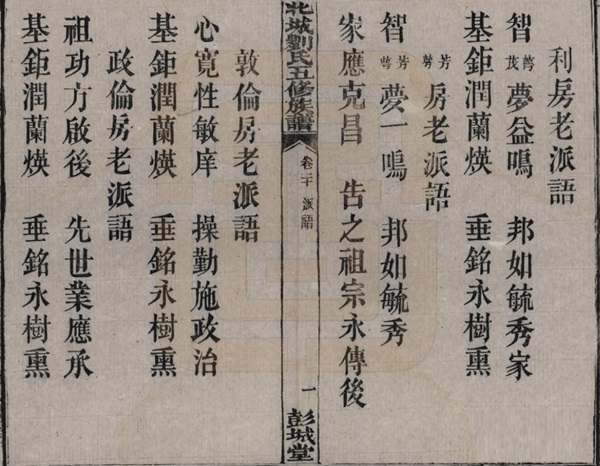 利房老派語
智 萬茂 夢益鳴 邦如毓秀家
基鉅潤蘭煐 垂銘永樹熏
芳 房老派語
智 芳 夢一鳴 邦如毓秀
家應克昌 告之祖宗永傳後
北城劉氏五修族譜 卷二十 派語 一 彭城堂
敦倫房老派語
心寬性敏庠 操勤施政治
基鉅潤蘭煐 垂銘永樹熏
政倫房老派語
祖功方啟後 先世業應承
基鉅潤蘭煐 垂銘永樹熏